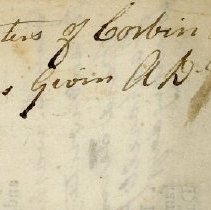 ters of Corbin
s Givin A D